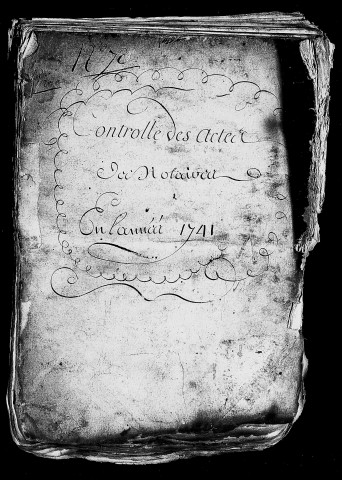 Controlle des actes
des Notaires
En Lannée 1741